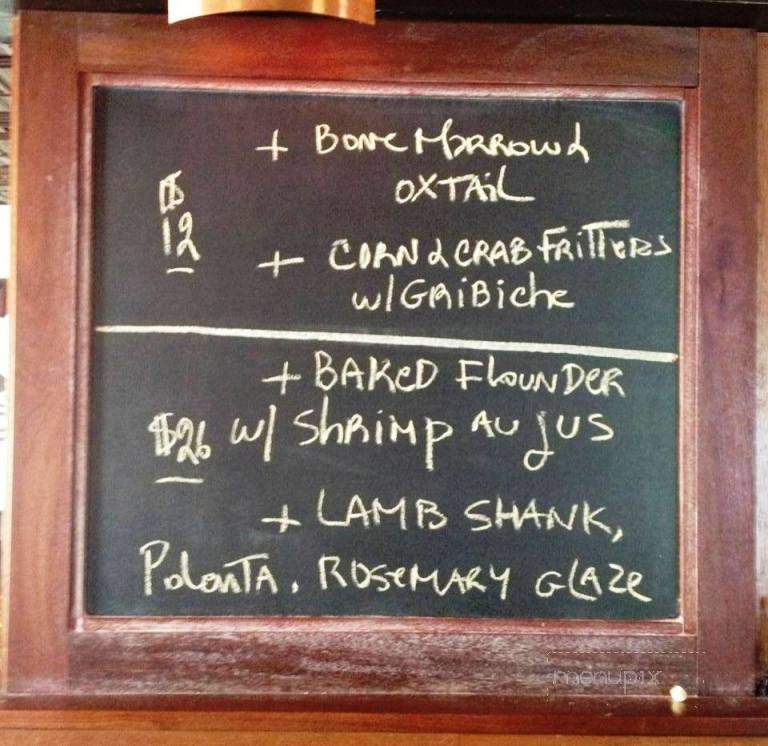 + Bone Marrow &
OXTAIL
$
12
+ CORN & CRAB FRITTERS
w/GRIBICHE
+ BAKED FLOUNDER
$26 w/ SHRIMP AU JUS
+ LAMB SHANK,
Polenta, ROSEMARY GLAZE
menupix